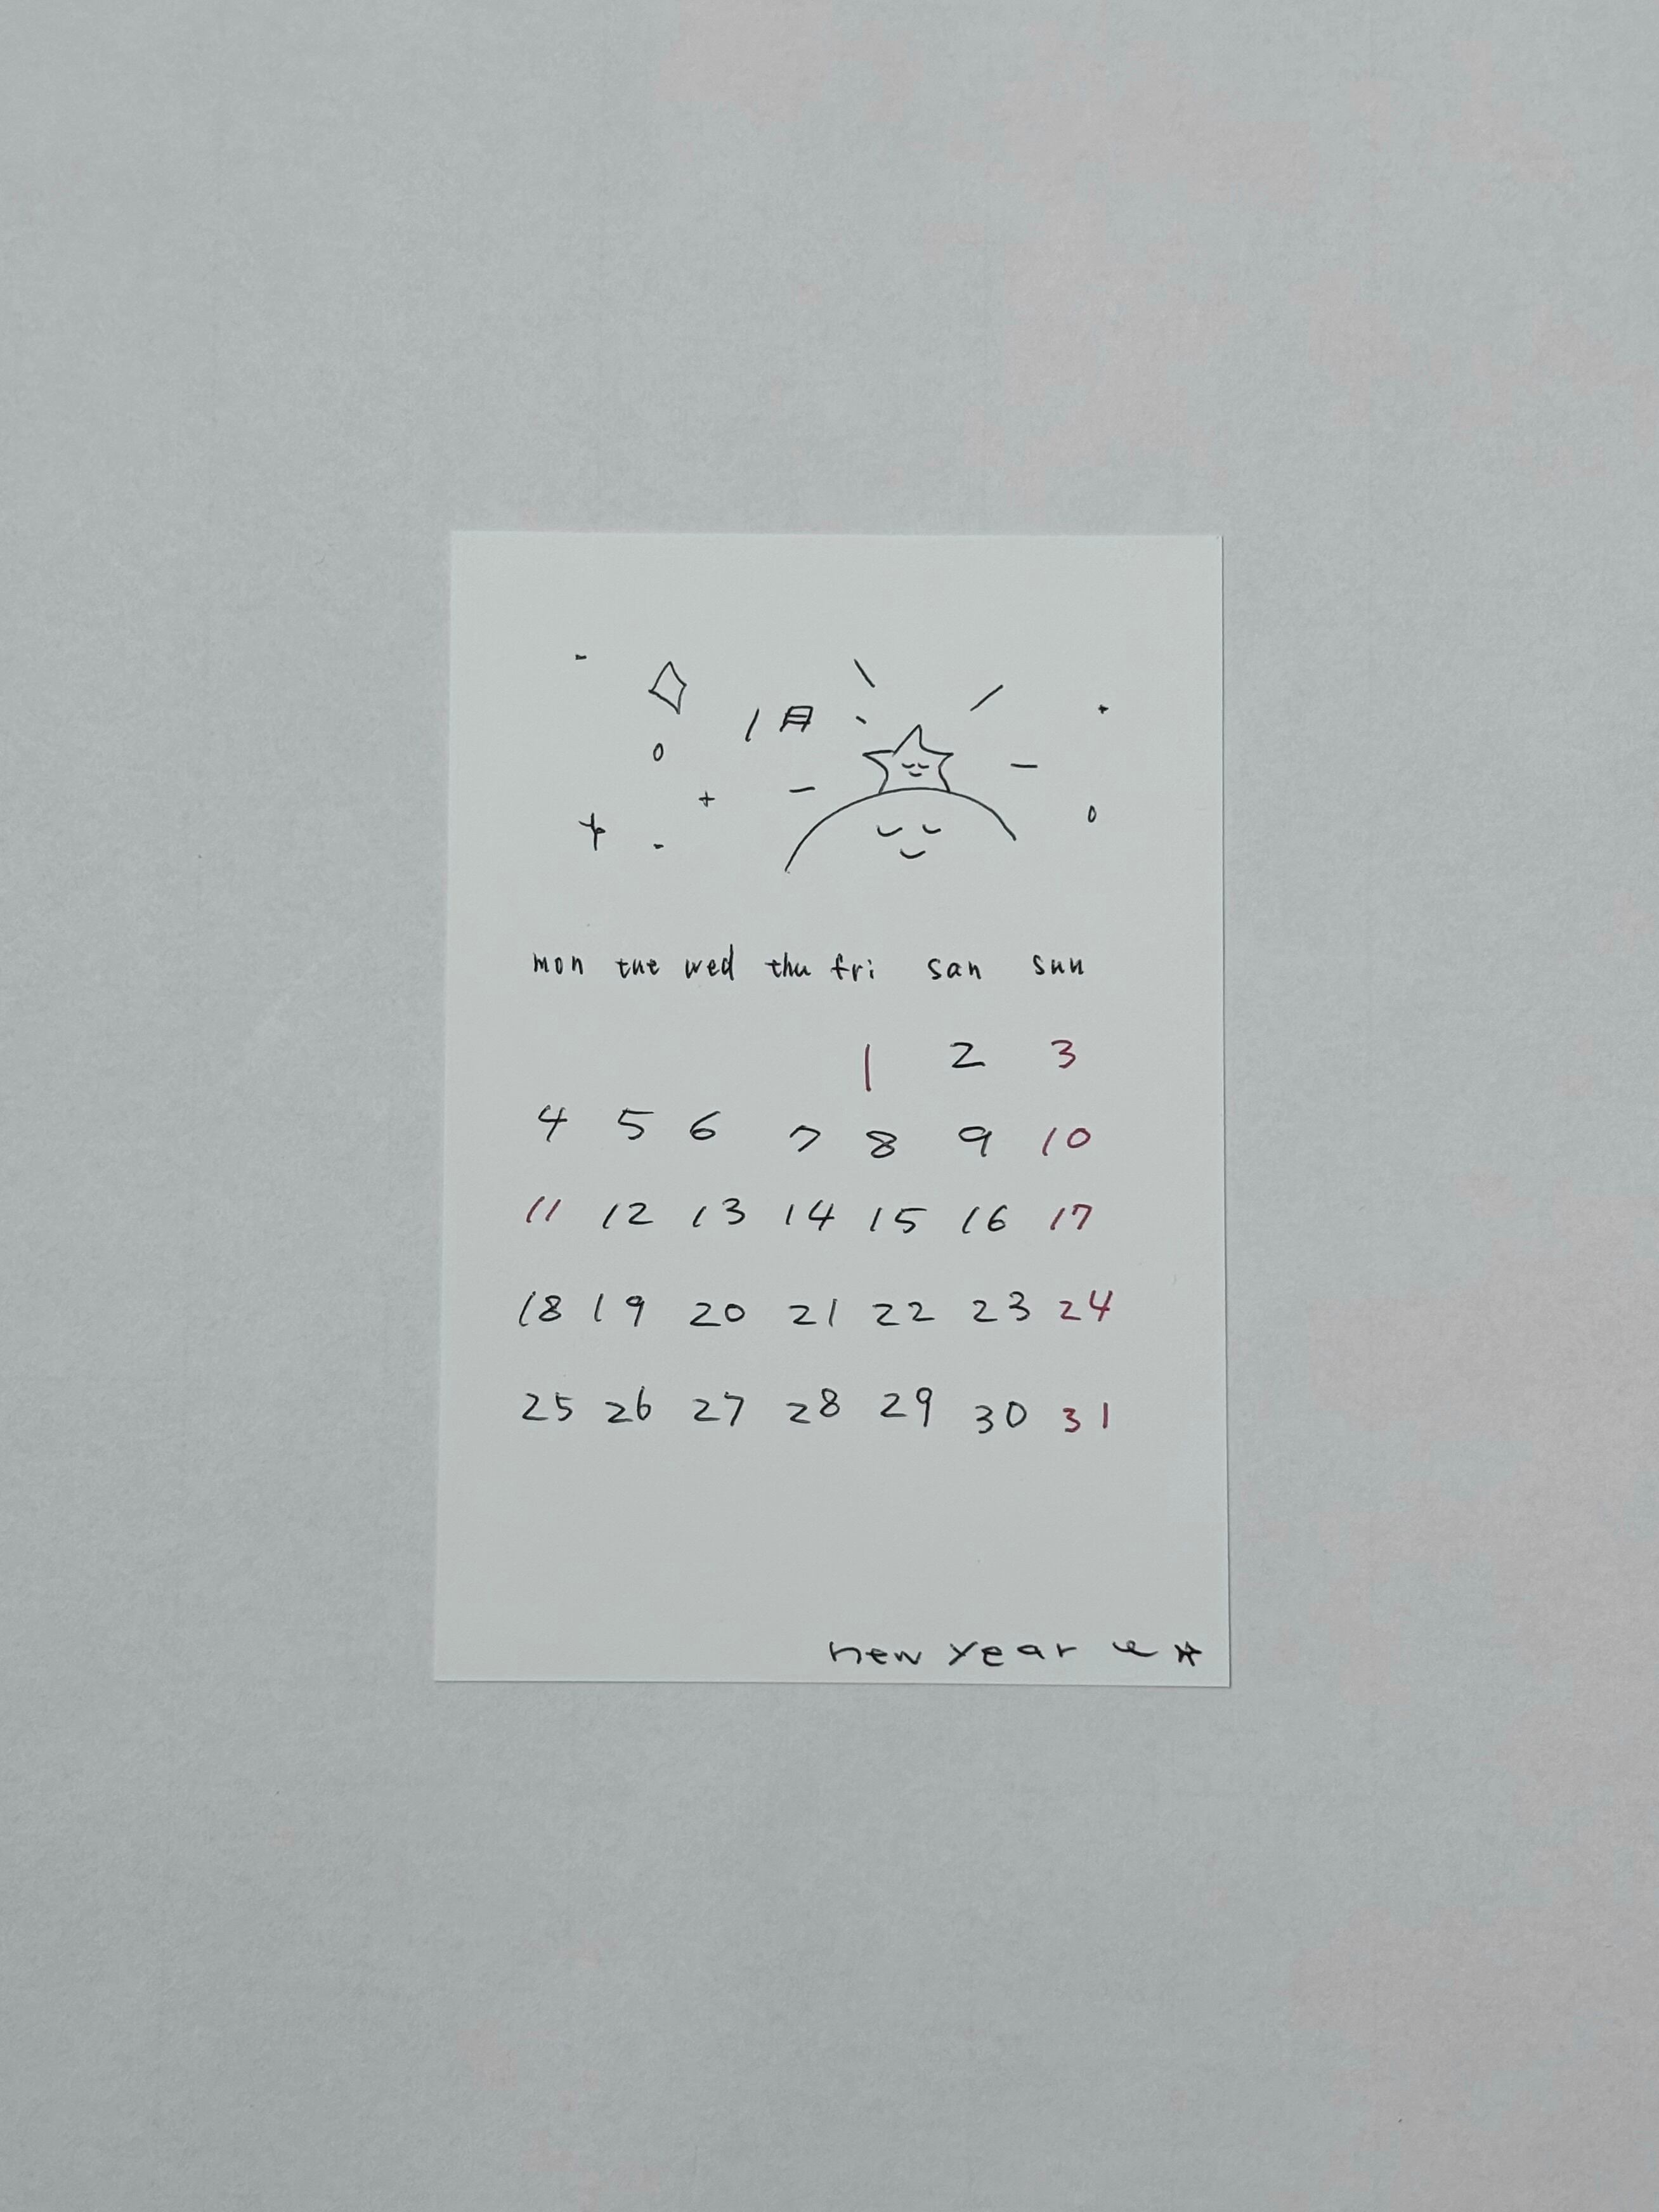 1月
mon tue wed thu fri san sun
1 2 3
4 5 6 7 8 9 10
11 12 13 14 15 16 17
18 19 20 21 22 23 24
25 26 27 28 29 30 31
new year